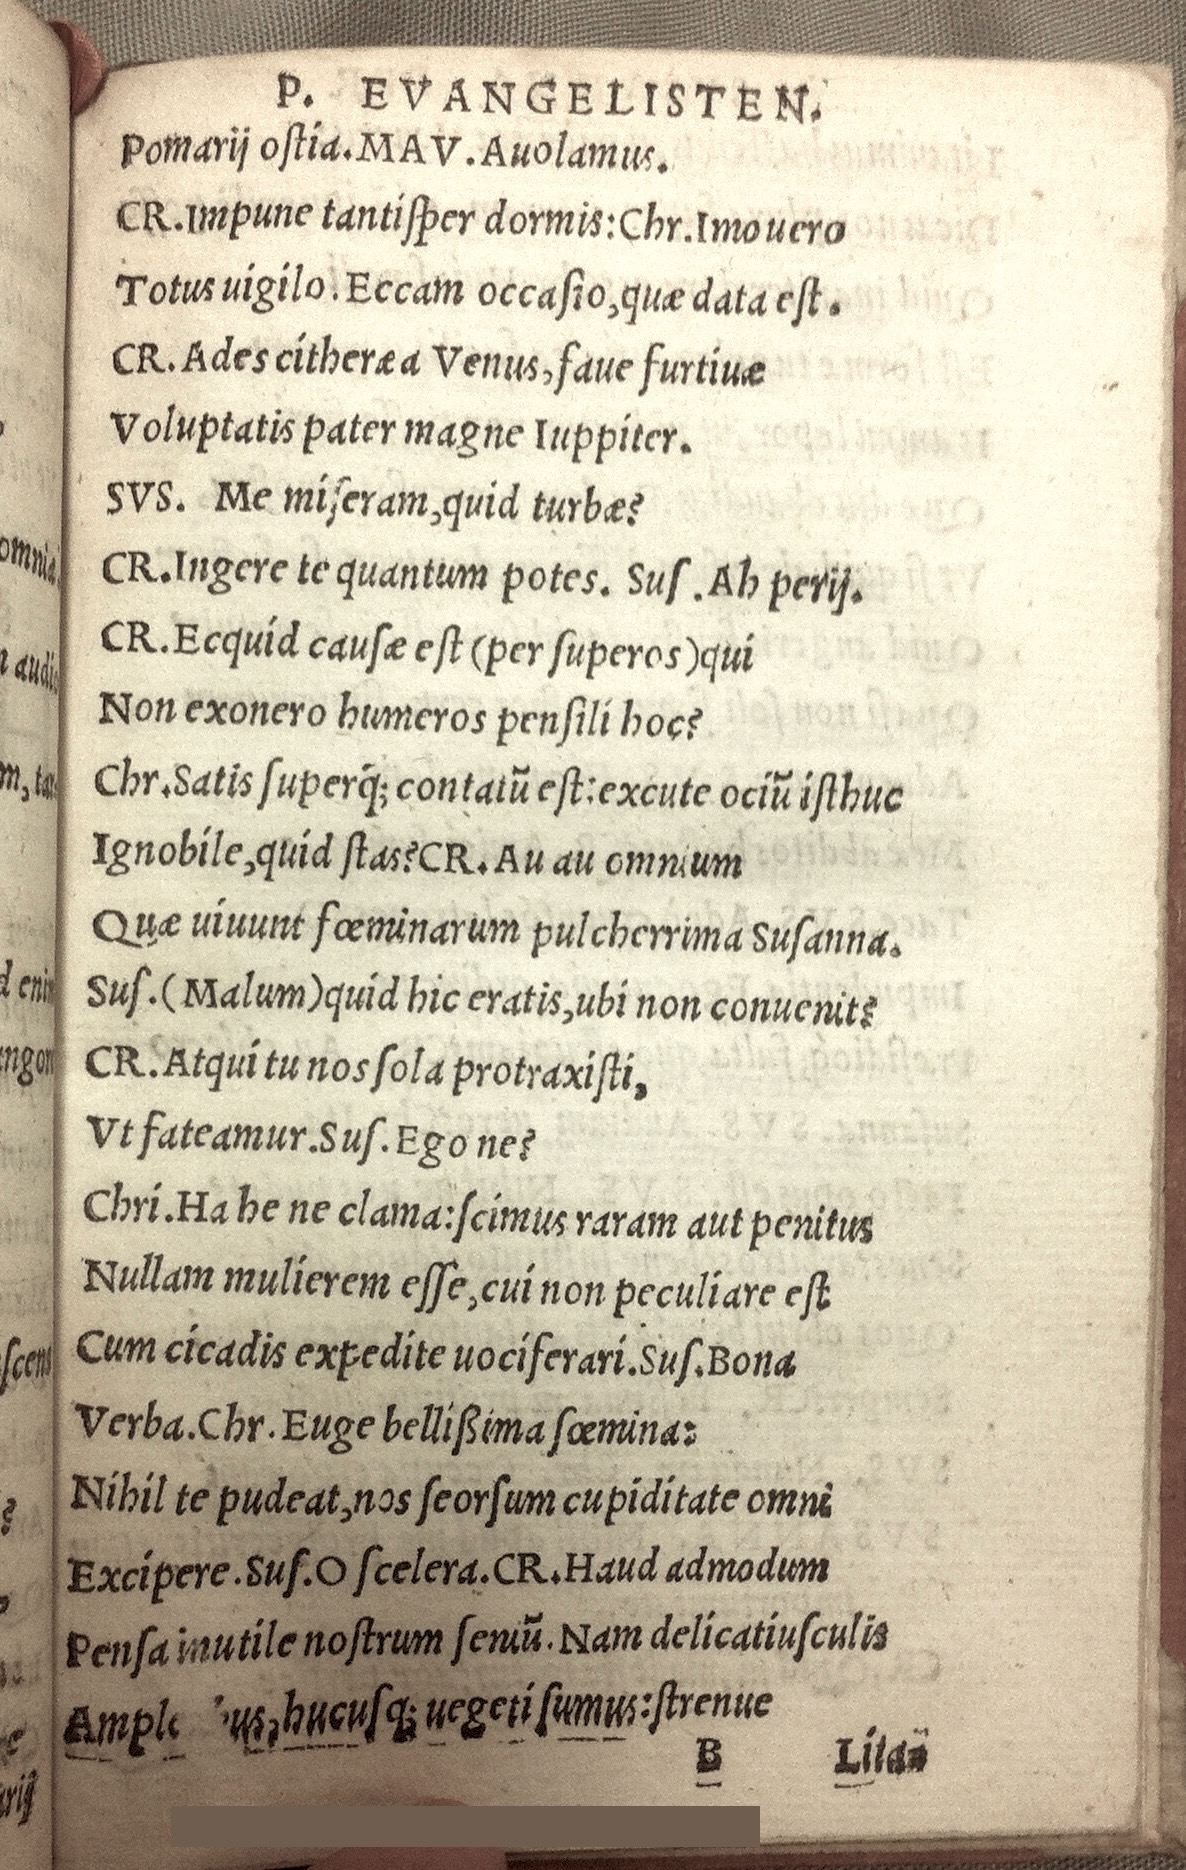 P. EVANGELISTEN.
Pomarij oſtia. MAV. Auolamus.
CR. Impune tantiſper dormis: Chr. Imo uero
Totus uigilo. Eccam occaſio, quæ data eſt.
CR. Ades citheræa Venus, faue furtiuæ
Voluptatis pater magne Iuppiter.
SVS. Me miſeram, quid turbæ?
CR. Ingere te quantum potes. Suſ. Ah perij.
CR. Ecquid cauſæ eſt (per ſuperos) qui
Non exonero humeros penſili hoc?
Chr. Satis ſuperq́; contatū eſt: excute ociū iſthuc
Ignobile, quid ſtas? CR. Au au omnium
Quæ uiuunt fœminarum pulcherrima Suſanna.
Suſ. (Malum) quid hic eratis, ubi non conuenit?
CR. Atqui tu nos ſola protraxiſti,
Vt fateamur. Suſ. Ego ne?
Chri. Ha he ne clama: ſcimus raram aut penitus
Nullam mulierem eſſe, cui non peculiare eſt
Cum cicadis expedite uociferari. Suſ. Bona
Verba. Chr. Euge bellißima fœmina:
Nihil te pudeat, nos ſeorſum cupiditate omni
Excipere. Suſ. O ſcelera. CR. Haud admodum
Penſa inutile noſtrum ſeniū. Nam delicatiuſculis
hucuſq; uegeti ſumus: ſtrenue
B
omnia
audi
m, tan
d enim
ſcens